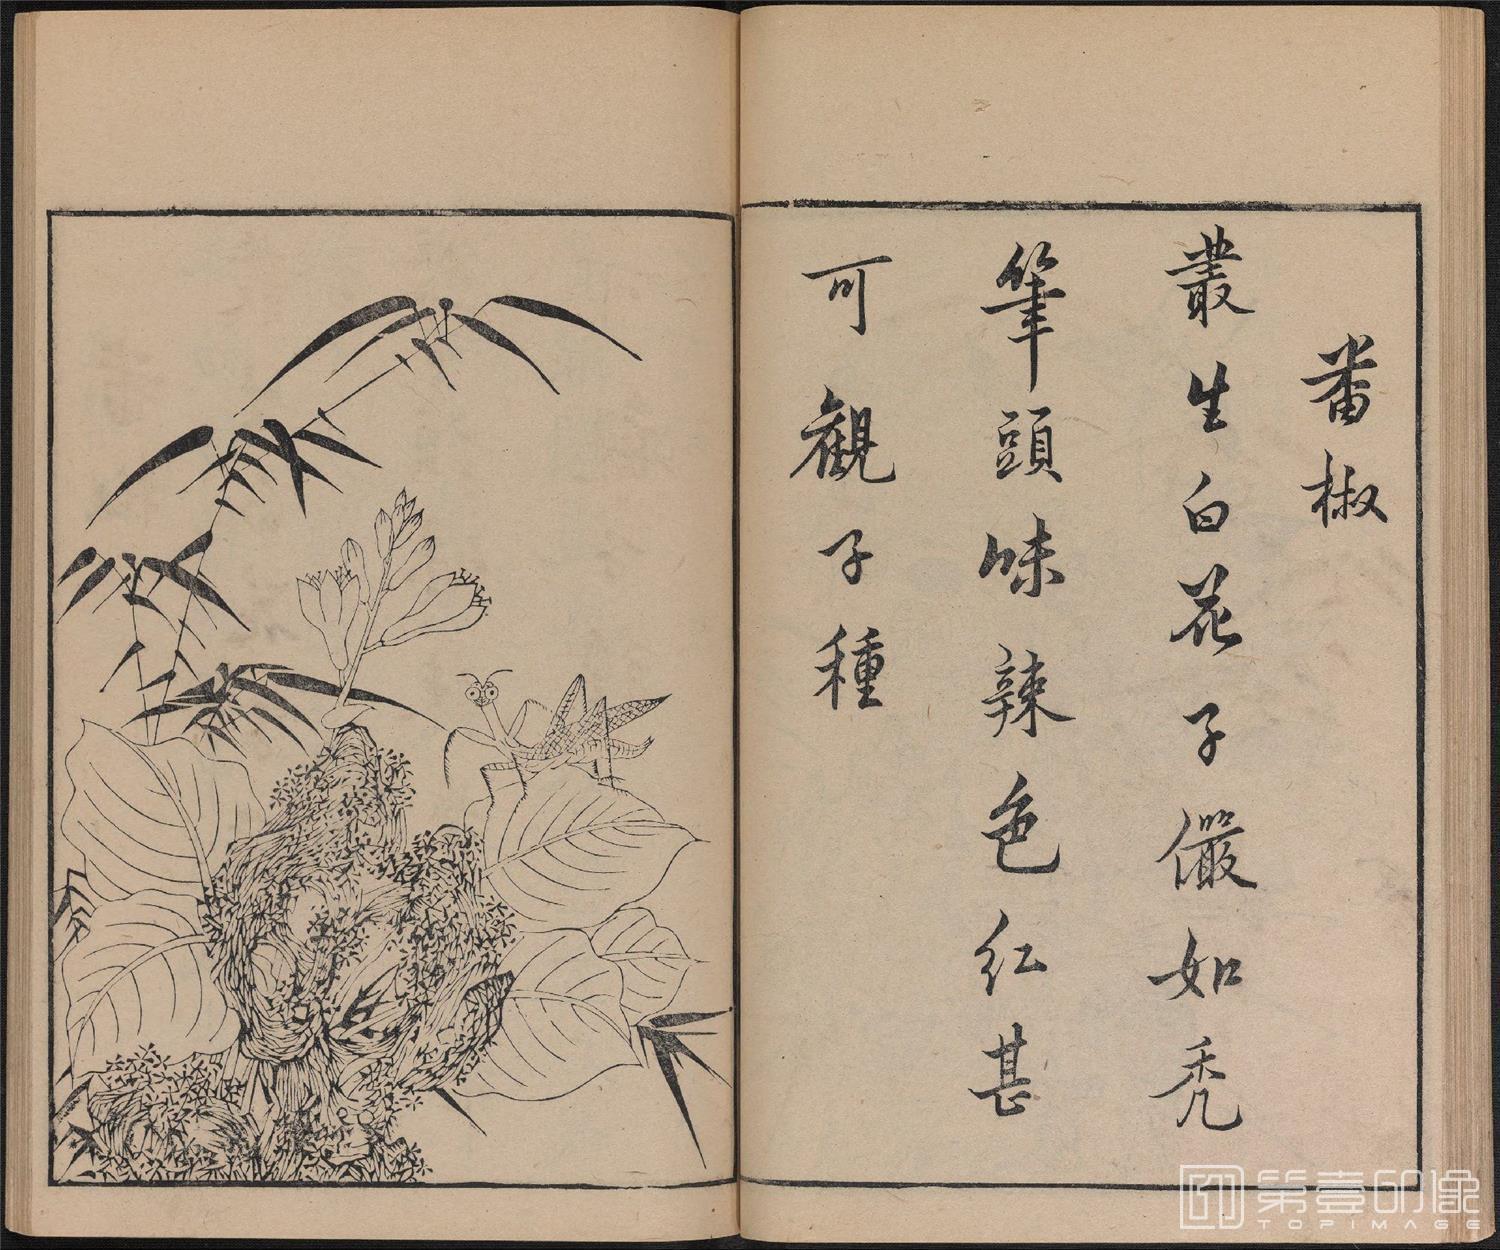 番椒
叢生白花子儼如秃
筆頭味辣色红甚
可觀子種
第壹印像
TOPIMAGE